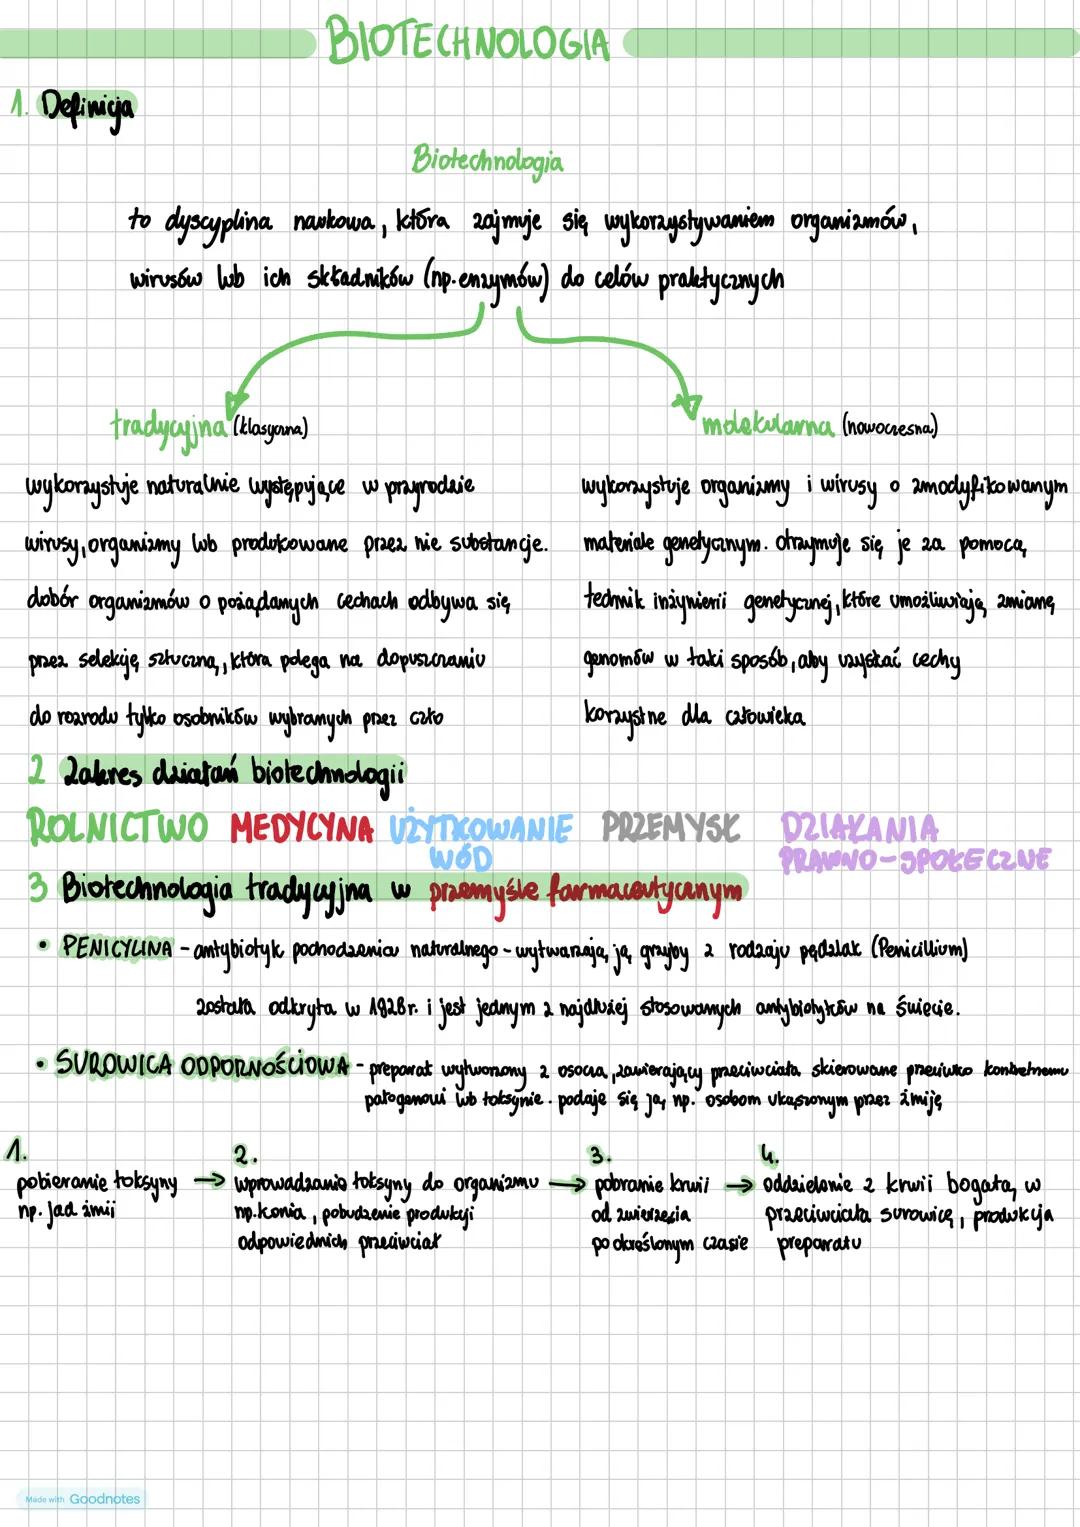 BIOTECHNOLOGIA
1. Definicja
Biotechnologia
to dyscyplina naukowa, która zajmuje się wykorzystywaniem organizmów,
wirusów lub ich składników (np. enzymów) do celów praktycznych
tradycyjna (klasyczna)
wykorzystuje naturalnie występujące w przyrodzie
wirusy, organizmy lub produkowane przez nie substancje.
dobór organizmów o pożądanych cechach odbywa się
przez selekcję sztuczną, która polega na dopuszczaniu
do rozrodu tylko osobników wybranych przez czło
molekularna (nowoczesna)
wykorzystuje organizmy i wirusy o zmodyfikowanym
materiale genetycznym. otrzymuje się je za pomocą
technik inżynierii genetycznej, które umożliwiają zmianę
genomów w taki sposób, aby uzyskać cechy
korzystne dla człowieka
2 Zakres działań biotechnologii
ROLNICTWO MEDYCYNA UŻYTKOWANIE WÓD PRZEMYSŁ DZIAŁANIA PRAWNO-SPOŁECZNE
3 Biotechnologia tradycyjna w przemyśle farmaceutycznym
• PENICYLINA - antybiotyk pochodzenia naturalnego - wytwarzają ją grzyby z rodzaju pędzlak (Penicillium)
została odkryta w 1928r. i jest jednym z najdłużej stosowanych antybiotyków na świecie.
• SUROWICA ODPORNOŚCIOWA - preparat wytworzony z osocza, zawierający przeciwciała skierowane przeciwko konkretnemu
patogenowi lub toksynie. podaje się ją np. osobom ukąszonym przez żmiję
1.
pobieranie toksyny →
np. jad żmii
2.
wprowadzanie toksyny do organizmu →
np. konia, pobudzenie produkcji
odpowiednich przeciwciał
3.
pobranie krwi →
od zwierzęcia
po określonym czasie
4.
oddzielenie z krwii bogatą w
przeciwciała surowicę, produkcja
preparatu
Made with Goodnotes